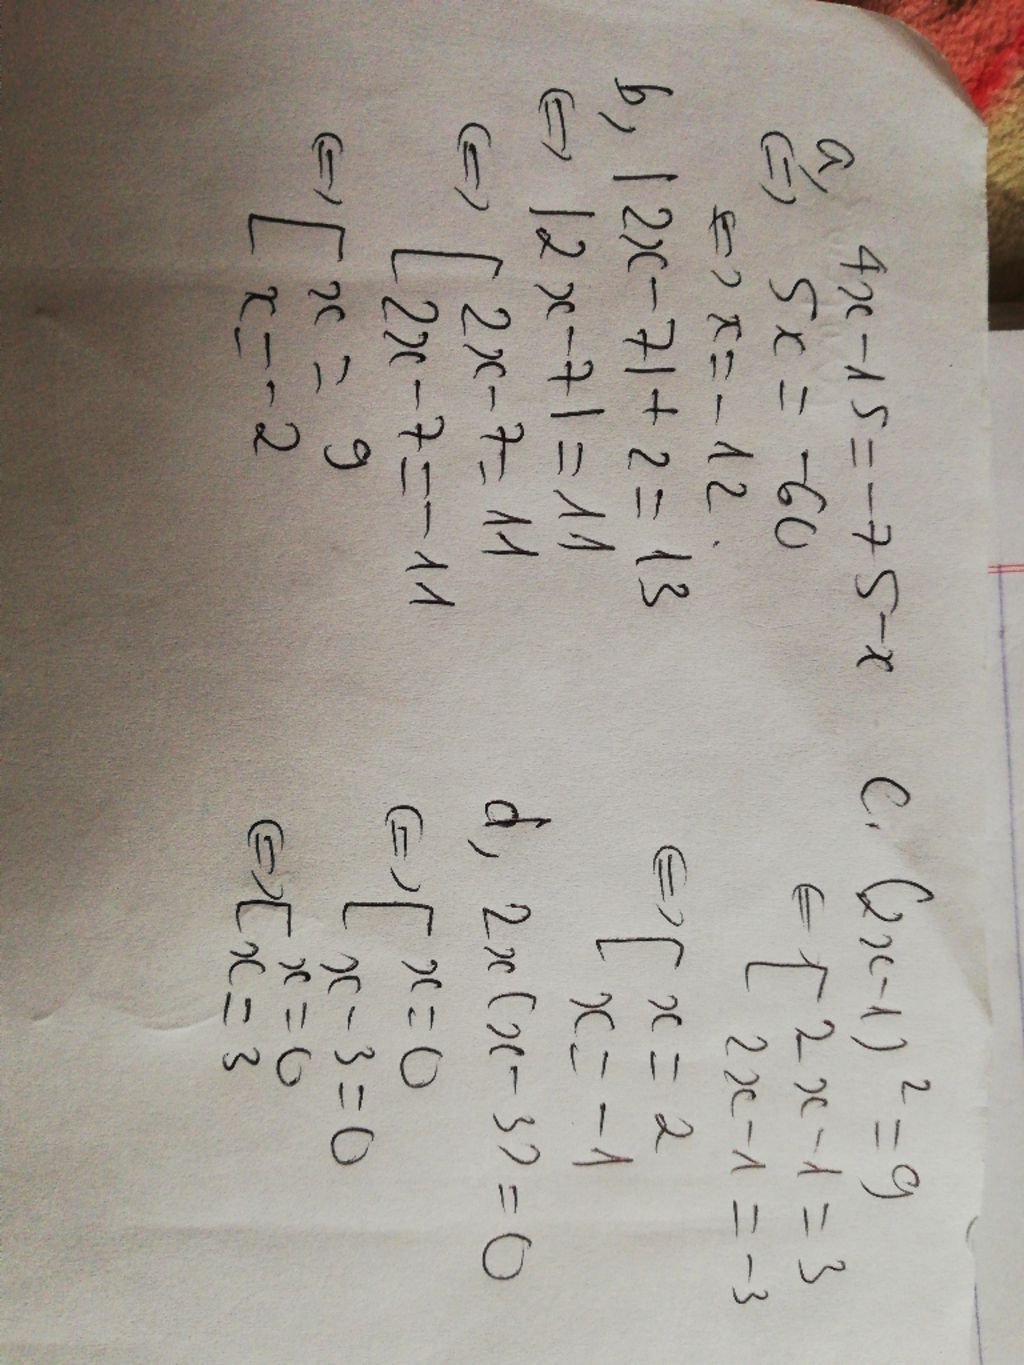 a, 4x-15=-75-x
<=> 5x = -60
<=> x = -12.
b, |2x-7|+2=13
<=> |2x-7|=11
<=> [2x-7=11
2x-7=-11
<=> [x=9
x=-2
c. (2x-1)²=9
<=> [2x-1=3
2x-1=-3
<=> [x=2
x=-1
d, 2x(x-3)=0
<=> [x=0
x-3=0
<=> [x=0
x=3